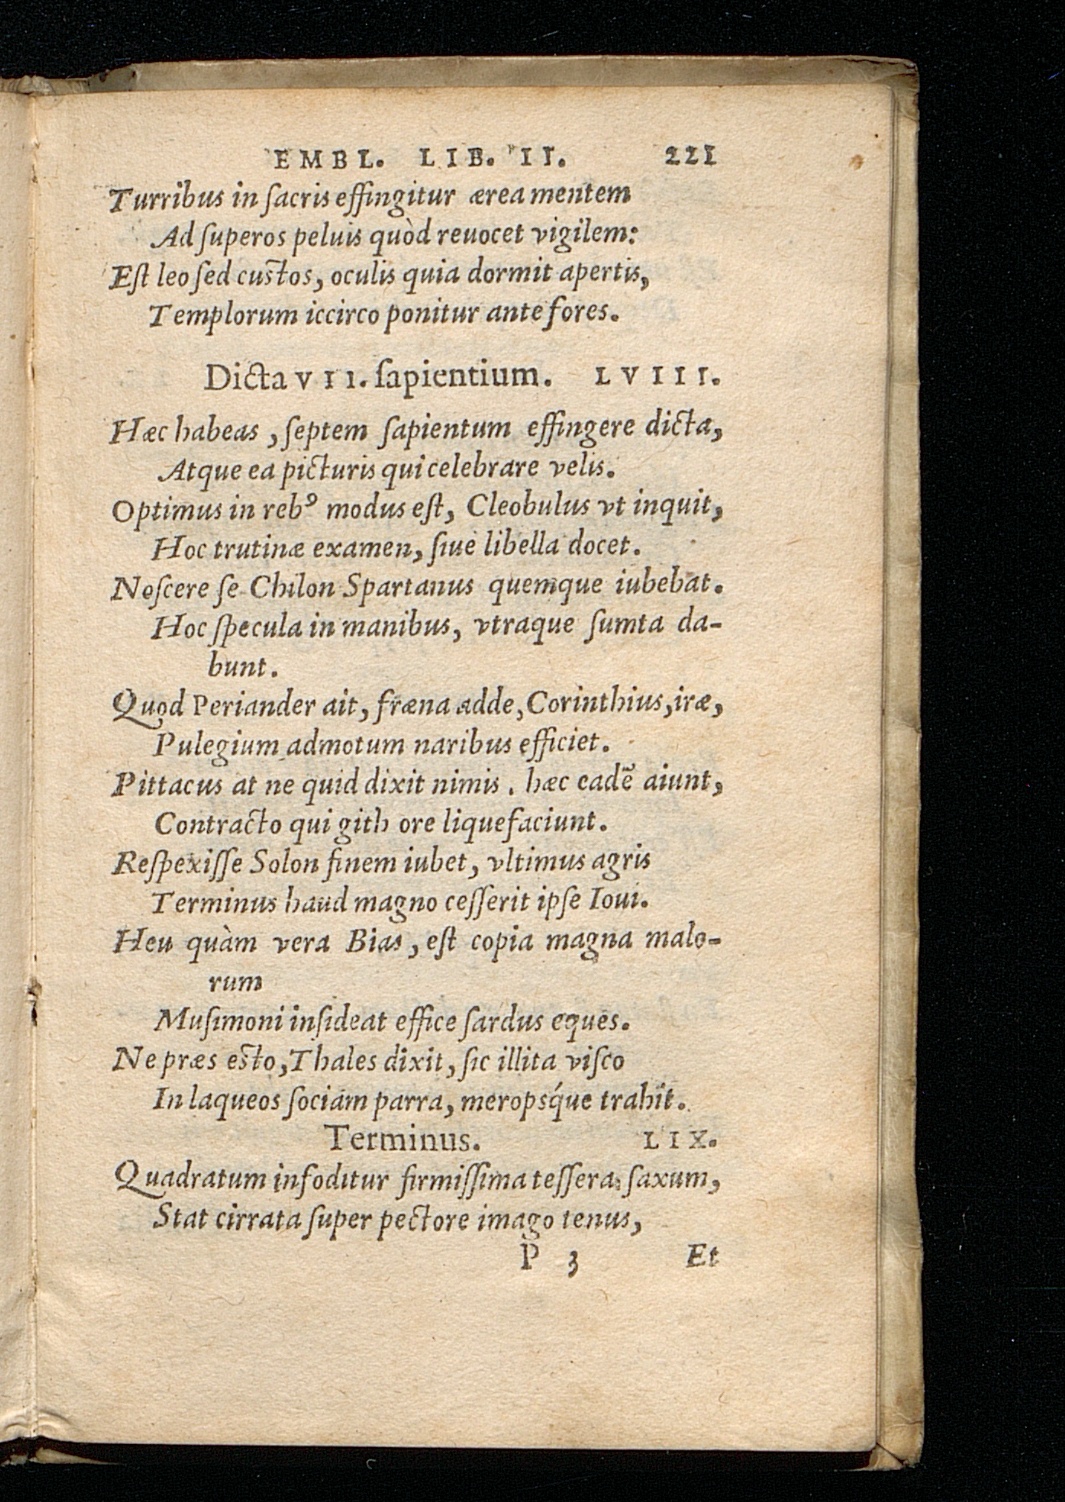 EMBL. LIB. II. 221
Turribus in ſacris effingitur ærea mentem
Ad ſuperos peluis quòd reuocet vigilem:
Eſt leo ſed cuſtos, oculis quia dormit apertis,
Templorum iccirco ponitur ante fores.
Dicta VII. ſapientium. LVIII.
Hæc habeas, ſeptem ſapientum effingere dicta,
Atque ea picturis qui celebrare velis.
Optimus in rebꝰ modus eſt, Cleobulus vt inquit,
Hoc trutinæ examen, ſiue libella docet.
Noſcere ſe Chilon Spartanus quemque iubebat.
Hoc ſpecula in manibus, vtraque ſumta da-
bunt.
Quod Periander ait, fræna adde, Corinthius, iræ,
Pulegium admotum naribus efficiet.
Pittacus at ne quid dixit nimis. hæc eadē aiunt,
Contracto qui gith ore liquefaciunt.
Reſpexiſſe Solon finem iubet, vltimus agris
Terminus haud magno ceſſerit ipſe Ioui.
Heu quàm vera Bias, eſt copia magna malo-
rum
Muſimoni inſideat effice ſardus eques.
Ne præs eſto, Thales dixit, ſic illita viſco
In laqueos ſociam parra, meropsq́ue trahit.
Terminus. LIX.
Quadratum infoditur firmiſſima teſſera ſaxum,
Stat cirrata ſuper pectore imago tenus,
P 3 Et